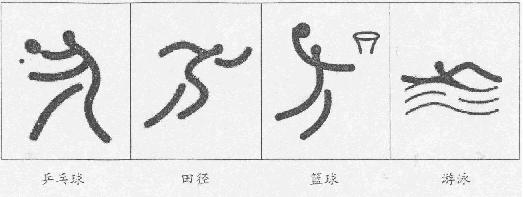 乒乓球
田径
篮球
游泳